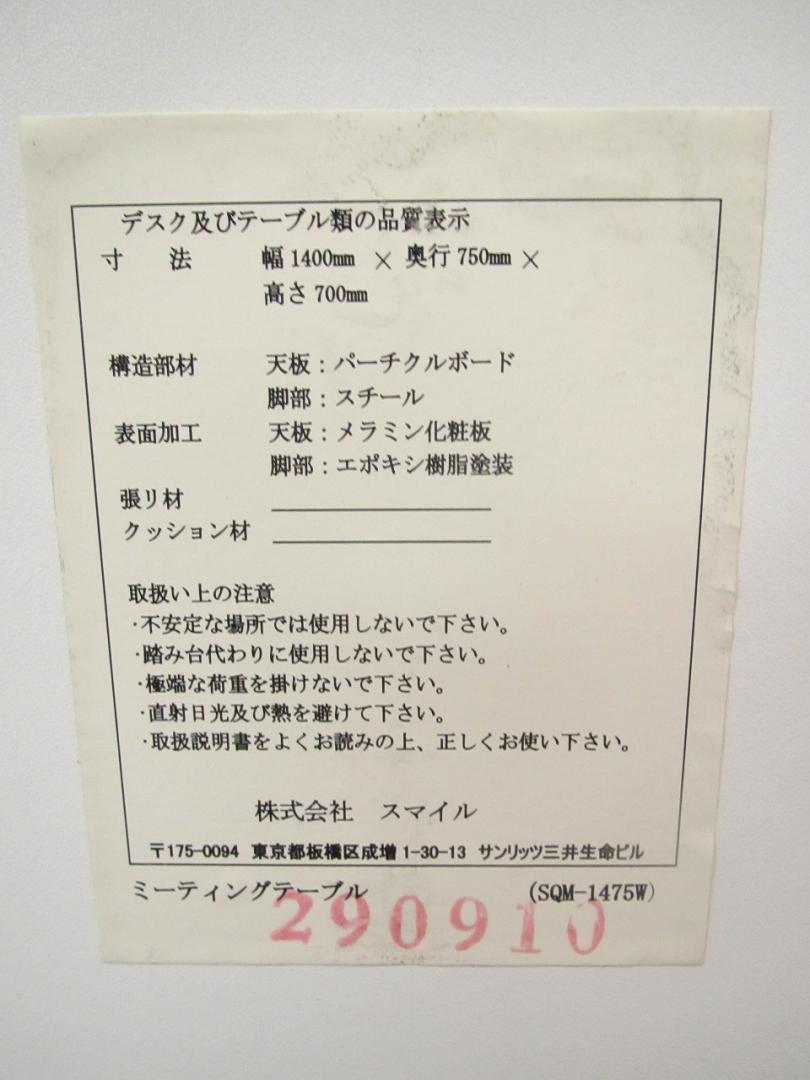 デスク及びテーブル類の品質表示
寸　法　幅1400mm × 奥行750mm ×
高さ700mm
構造部材　天板：パーチクルボード
脚部：スチール
表面加工　天板：メラミン化粧板
脚部：エポキシ樹脂塗装
張リ材
クッション材
取扱い上の注意
･不安定な場所では使用しないで下さい。
･踏み台代わりに使用しないで下さい。
･極端な荷重を掛けないで下さい。
･直射日光及び熱を避けて下さい。
･取扱説明書をよくお読みの上、正しくお使い下さい。
株式会社　スマイル
〒175-0094 東京都板橋区成増1-30-13 サンリッツ三井生命ビル
ミーティングテーブル　(SQM-1475W)
290910